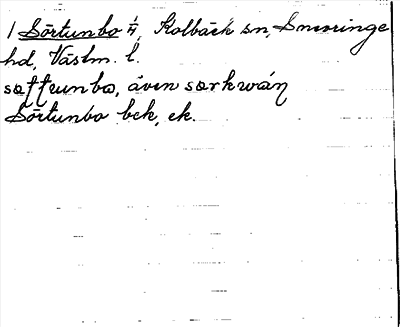 1 Sörtunbo 1/4, Kolbäck sn, Snevringe
hd, Västm. l.
sǝttunbo, även sǝrkwán
Sörtunbo bck, ek.